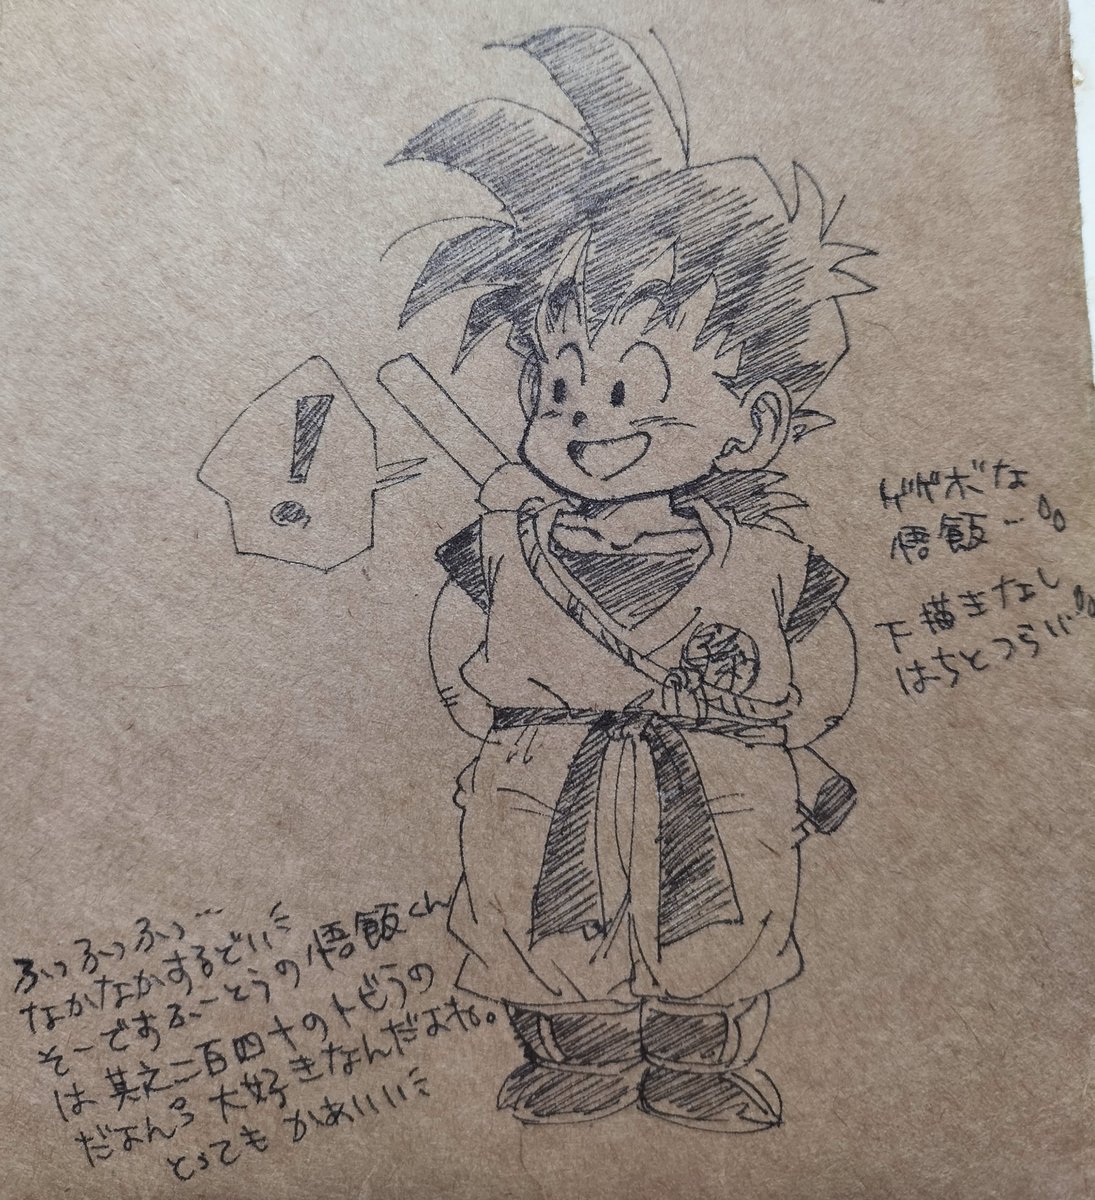 !
ゲゲボな
悟飯…
下描きなし
はちとつらい
ふっふっふっ…
なかなかするどい
そーですふーとうの悟飯くん
は其之二百四十のトビラの
だよん 大好きなんだよね。
とってもかあいい